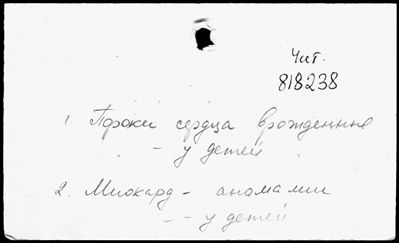 Чит.
818238
1. Пороки сердца врожденные
- у детей
2. Миокард - аномалии
- - у детей